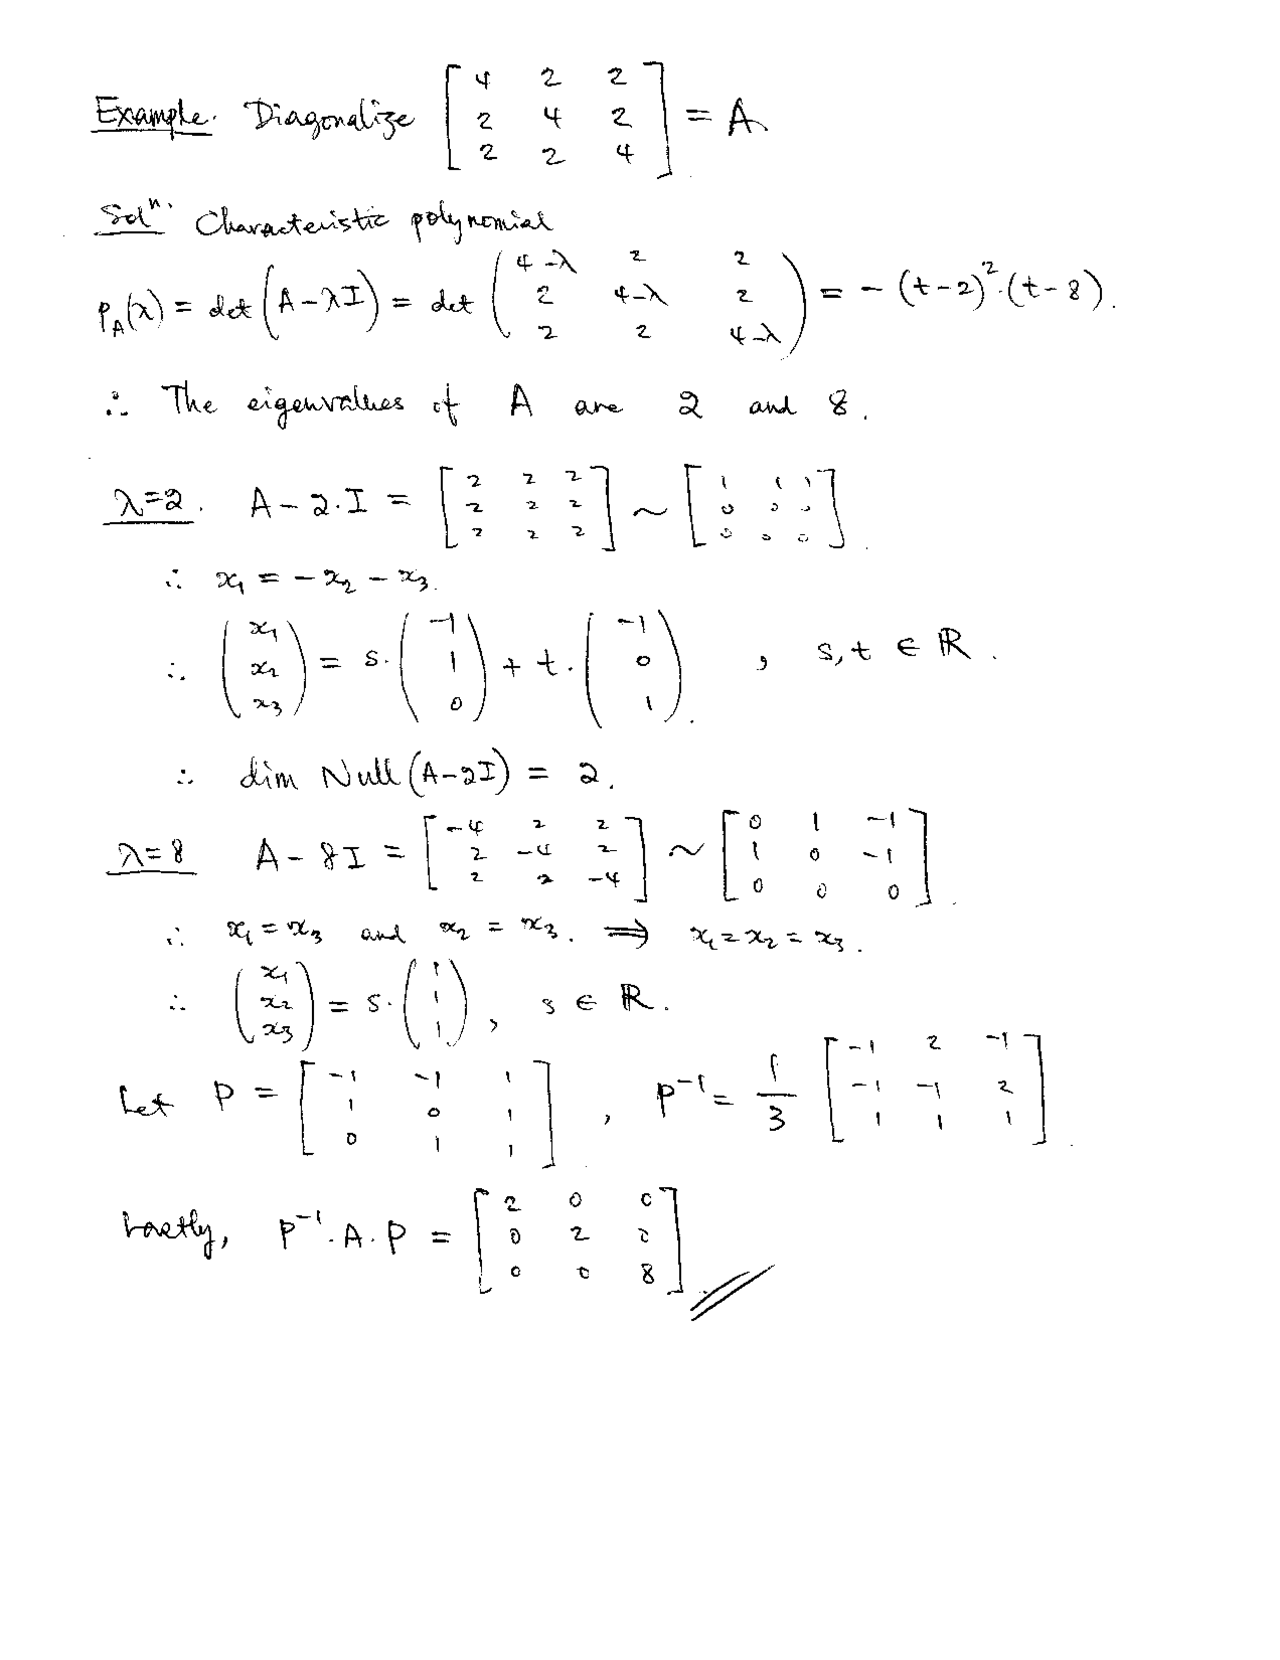 Example. Diagonalize [4 2 2; 2 4 2; 2 2 4] = A
Solⁿ. Characteristic polynomial
p_A(λ) = det(A-λI) = det(4-λ 2 2; 2 4-λ 2; 2 2 4-λ) = -(t-2)²·(t-8).
∴ The eigenvalues of A are 2 and 8.
λ=2. A-2·I = [2 2 2; 2 2 2; 2 2 2] ~ [1 1 1; 0 0 0; 0 0 0].
∴ x₁ = -x₂ - x₃.
∴ (x₁; x₂; x₃) = s·(-1; 1; 0) + t·(-1; 0; 1), s,t ∈ ℝ.
∴ dim Null(A-2I) = 2.
λ=8 A-8I = [-4 2 2; 2 -4 2; 2 2 -4] ~ [0 1 -1; 1 0 -1; 0 0 0].
∴ x₁ = x₃ and x₂ = x₃. ⟹ x₁ = x₂ = x₃.
∴ (x₁; x₂; x₃) = s·(1; 1; 1), s ∈ ℝ.
Let P = [-1 -1 1; 1 0 1; 0 1 1], P⁻¹ = 1/3 [-1 2 -1; -1 -1 2; 1 1 1].
Lastly, P⁻¹·A·P = [2 0 0; 0 2 0; 0 0 8].